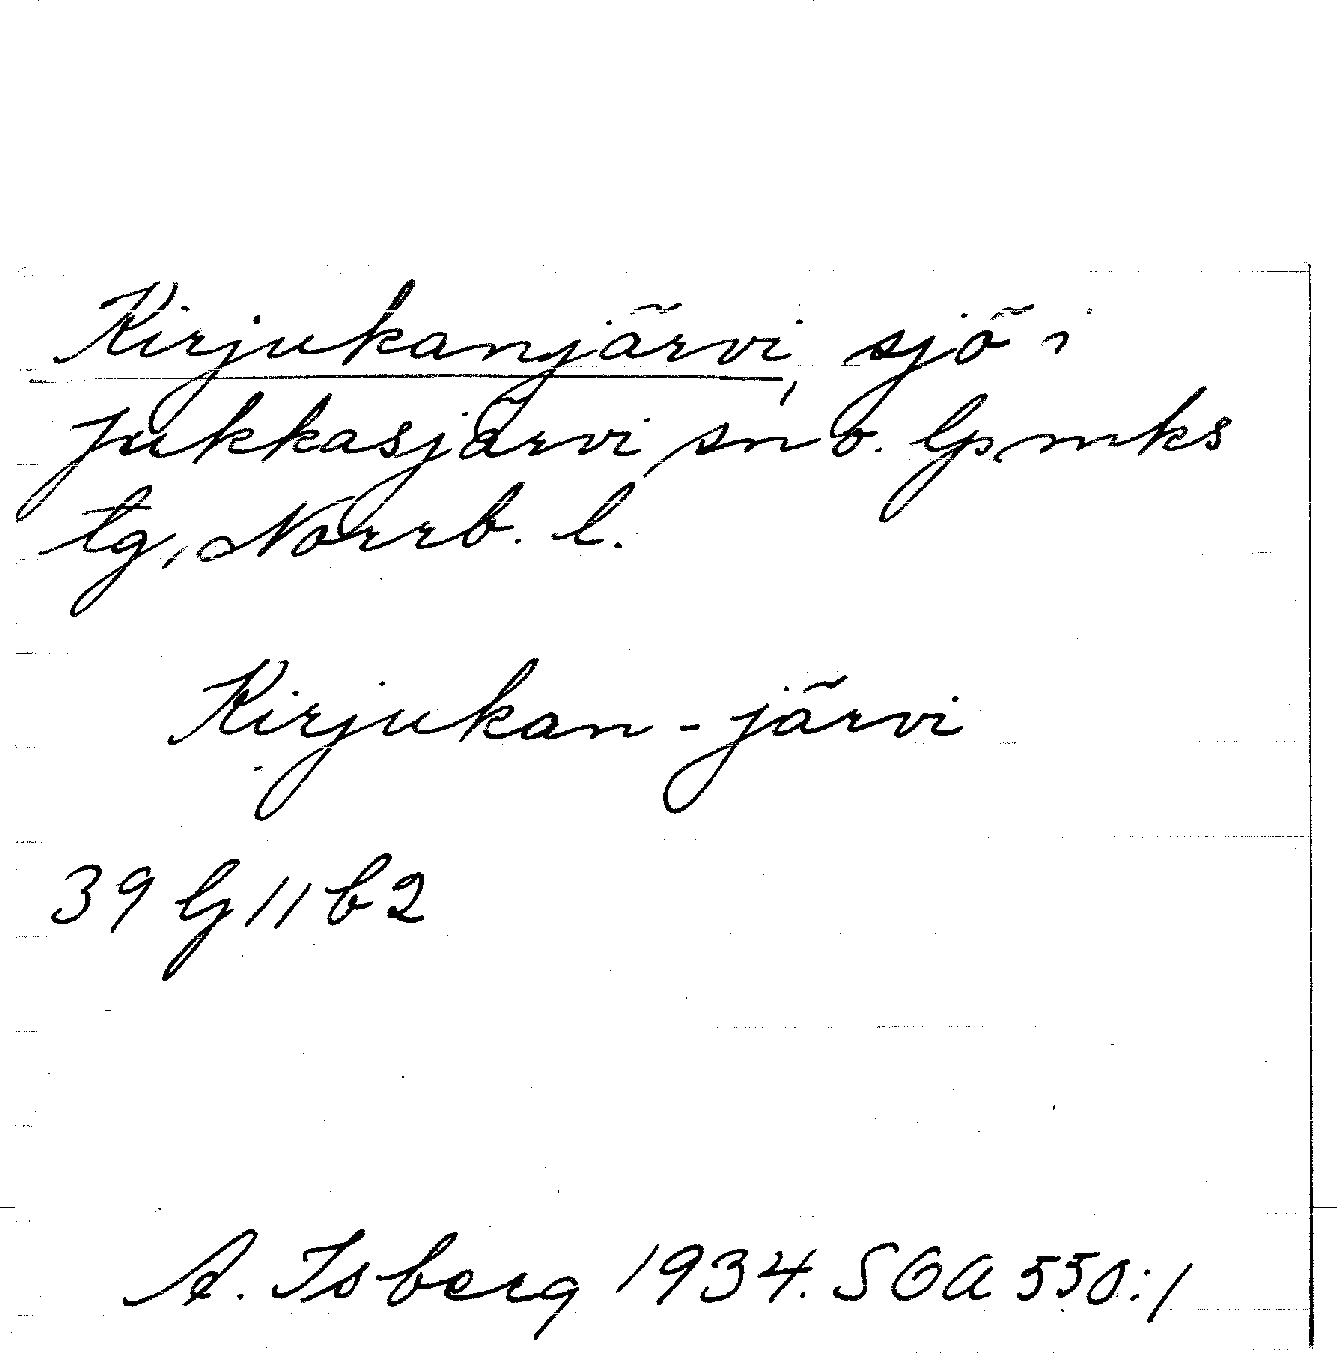 Kirjukanjärvi, sjö i
Jukkasjärvi sn o. lpmks
tg, Norrb. l.
Kirjukan-järvi
39 G 11 b 2
A. Isberg 1934. SOA 550:1